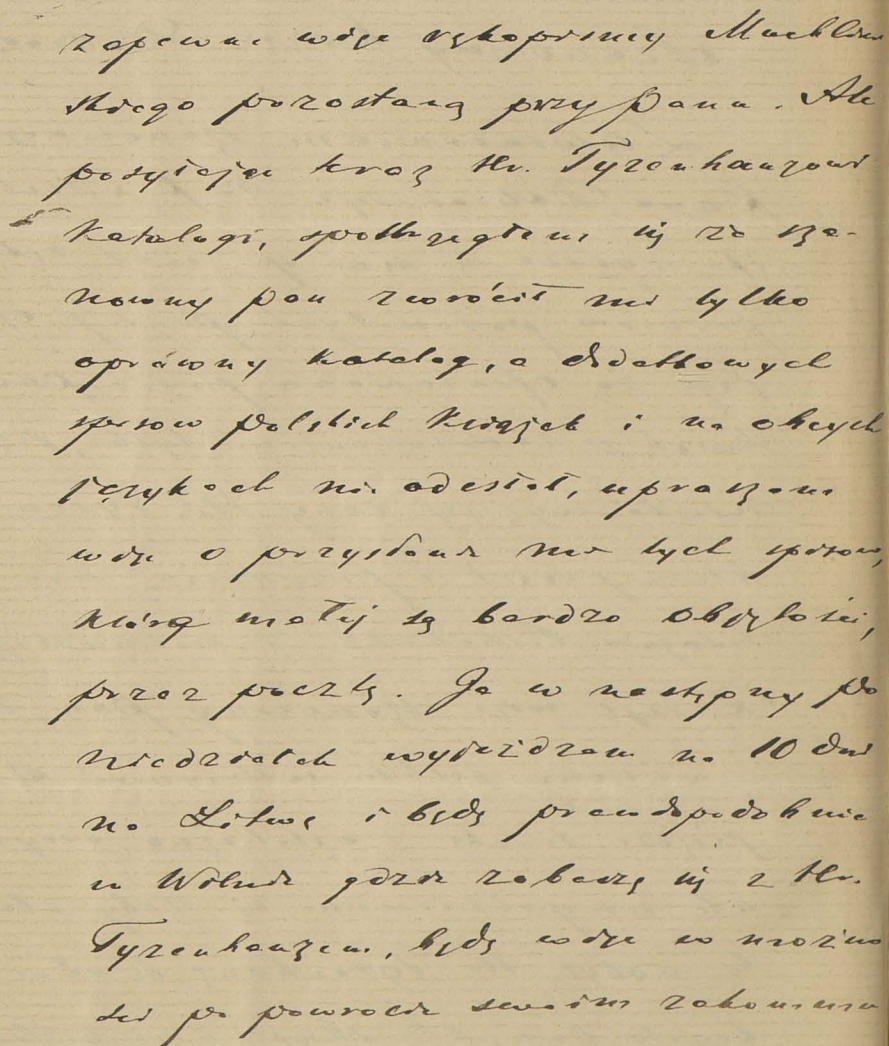 zapewne więc rękopismy Muchliń
skiego pozostaną przy Panu. Ale
posyłając teraz Hr. Tyzenhauzowi
katalogi, spostrzegłem się że sza-
nowny pan zwrócił mi tylko
oprawny katalog, a dodatkowych
spisow polskich książek i na obcych
językach nie odesłał, upraszam
więc o przysłanie mi tych spisow,
którę małej są bardzo objętości,
przez pocztę. Ja w następny po
niedziałek wyjeżdzam na 10 dni
na Litwę i będę prawdopodobnie
w Wilnie gdzie zobaczę się z Hr.
Tyzenhauzem, będę więc w możno
ści po powrocie swoim zakomuni